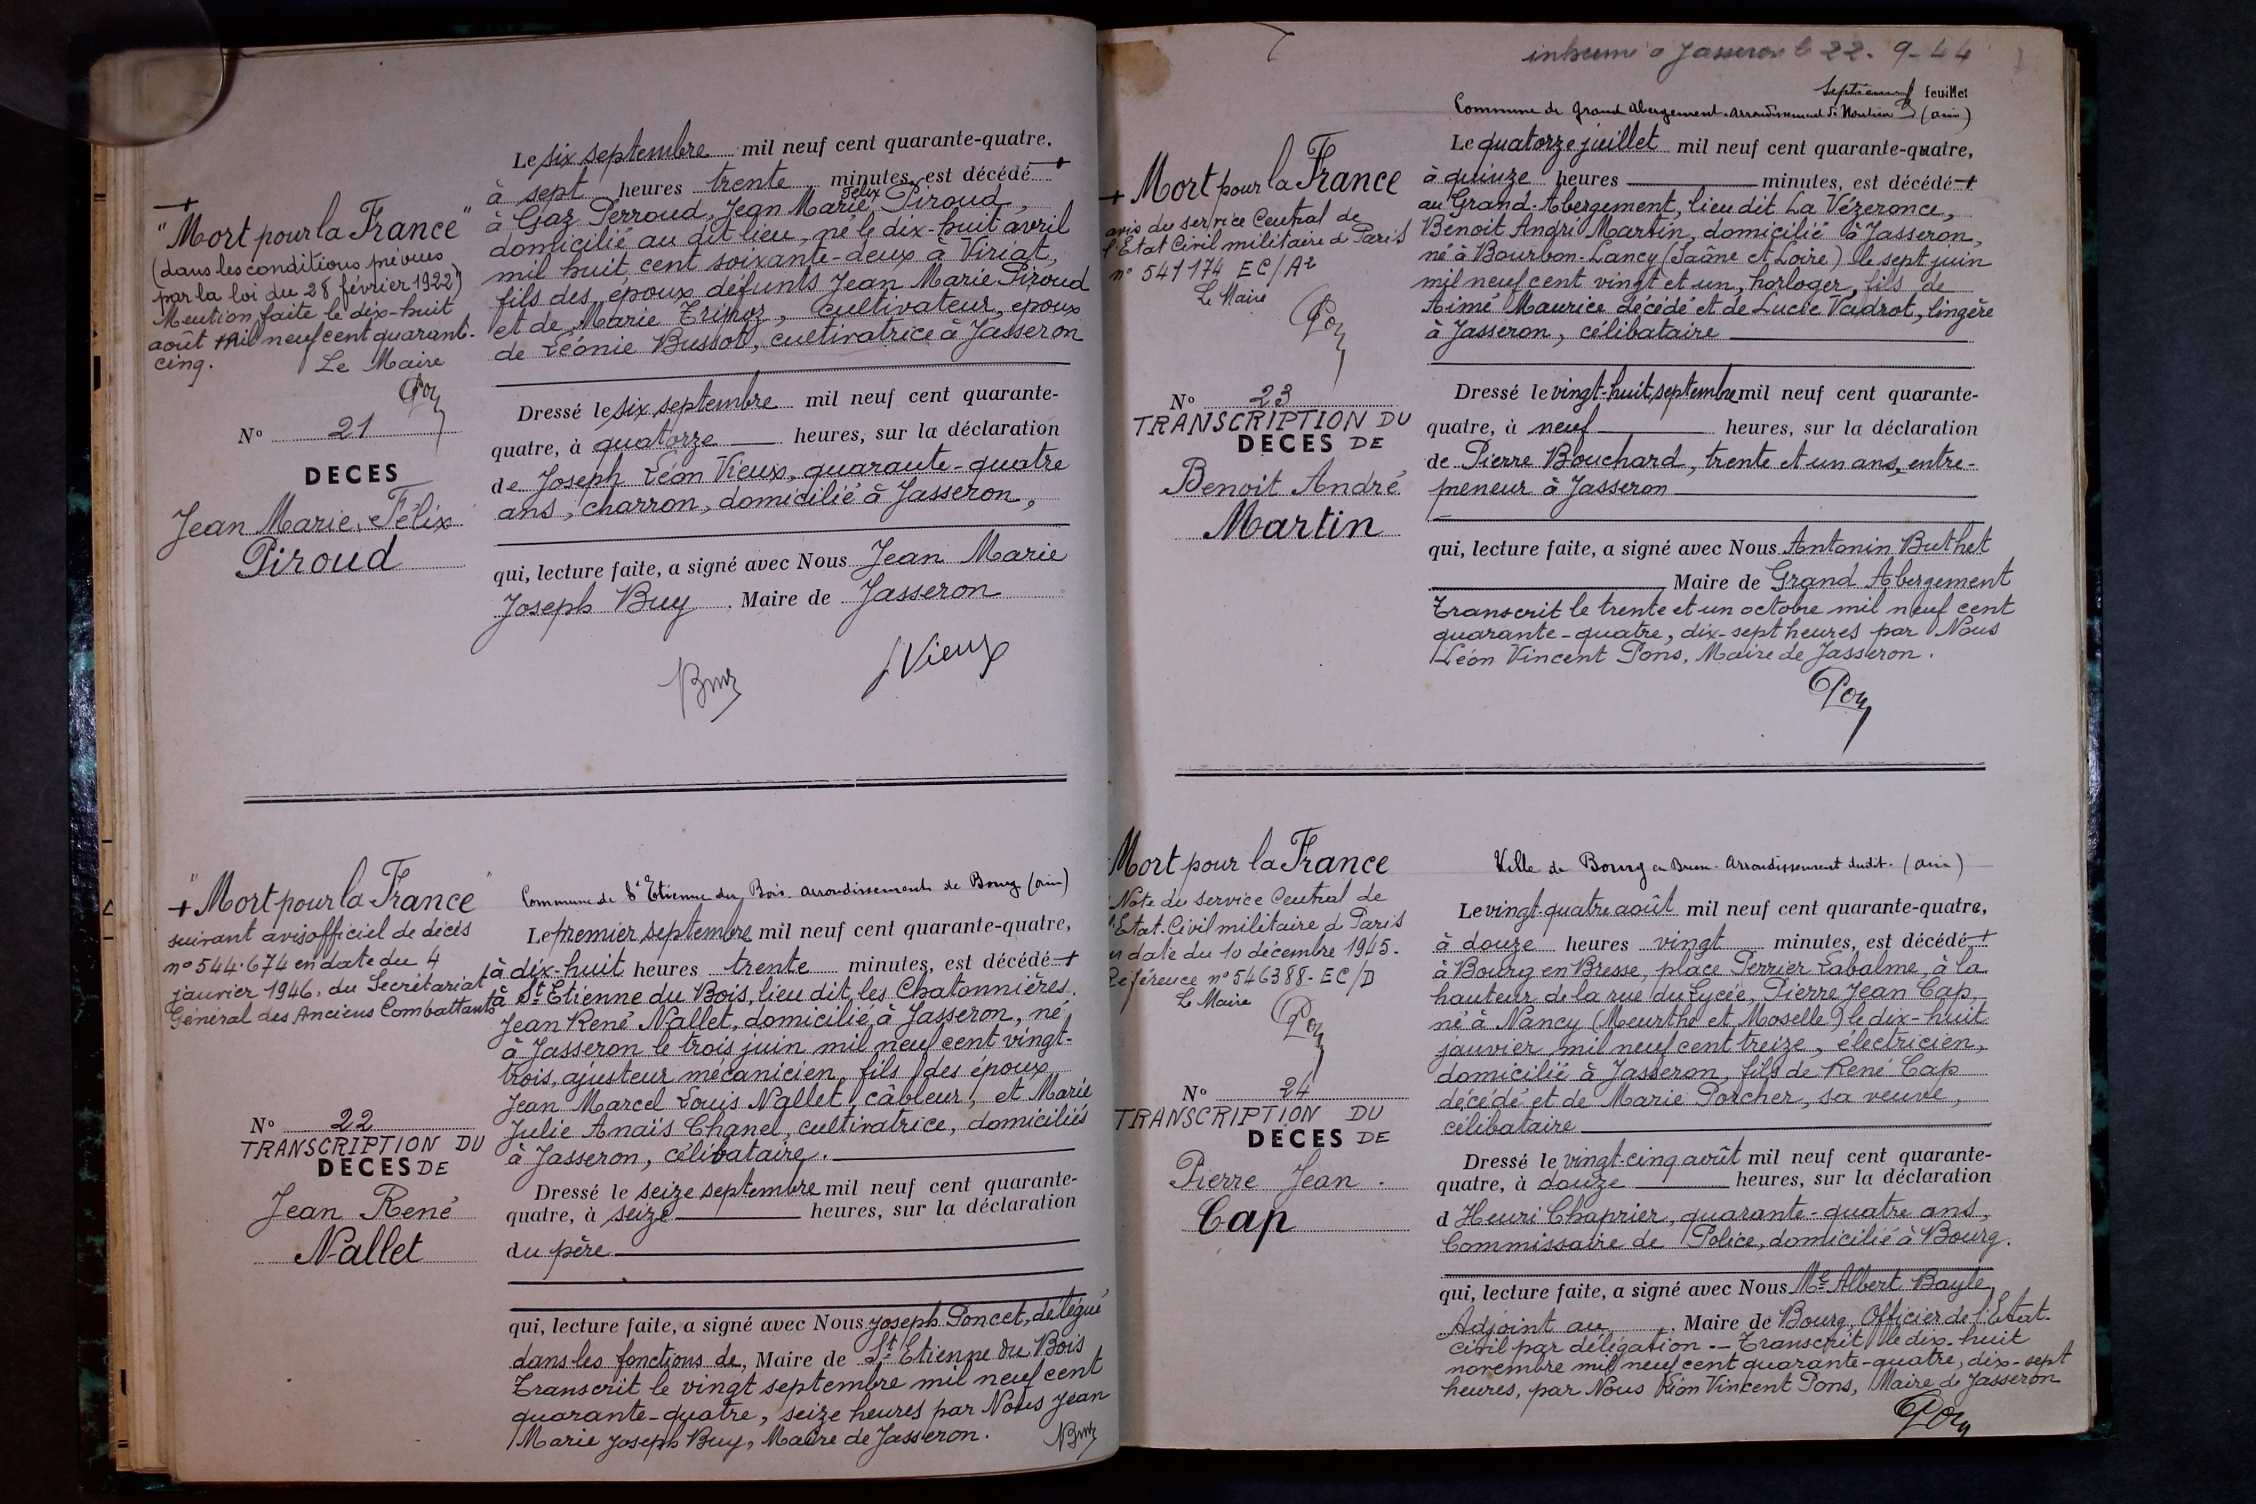 Le six septembre mil neuf cent quarante-quatre.
à sept heures trente minutes, est décédé +
Félix
à Gaz Perroud, Jean Marie Piroud,
domicilié au dit lieu, né le dix-huit avril
mil huit cent soixante-deux à Viriat,
fils des époux défunts Jean Marie Piroud
et de Marie Trinoz, cultivateur, époux
de Léonie Bussod, cultivatrice à Jasseron
+
"Mort pour la France"
(dans les conditions prévues
par la loi du 28 février 1922")
Mention faite le dix-huit
août mil neuf cent quarant-
cinq. Le Maire
Pons
No 21
DECES
Jean Marie Félix
Piroud
Dressé le six septembre mil neuf cent quarante-
quatre, à quatorze heures, sur la déclaration
de Joseph Léon Vieux, quarante-quatre
ans, charron, domicilié à Jasseron,
qui, lecture faite, a signé avec Nous Jean Marie
Joseph Buy, Maire de Jasseron
Buy
J Vieux
"Mort pour la France"
suivant avis officiel de décès
no 544.674 en date du 4
janvier 1946, du Secrétariat
Général des Anciens Combattants
No 22
TRANSCRIPTION DU
DECES DE
Jean René
Nallet
Commune de St Etienne du Bois. arrondissement de Bourg (ain)
Le premier septembre mil neuf cent quarante-quatre,
à dix-huit heures trente minutes, est décédé +
à St Etienne du Bois, lieu dit les Chatonnières.
Jean René Nallet, domicilié à Jasseron, né
à Jasseron le trois juin mil neuf cent vingt-
trois, ajusteur mécanicien, fils des époux
Jean Marcel Louis Nallet, câbleur, et Marie
Julie Anaïs Chanel, cultivatrice, domiciliés
à Jasseron, célibataire.
Dressé le seize septembre mil neuf cent quarante-
quatre, à seize heures, sur la déclaration
du père
qui, lecture faite, a signé avec Nous Joseph Poncet, délégué
dans les fonctions de, Maire de St Etienne du Bois
Transcrit le vingt septembre mil neuf cent
quarante-quatre, seize heures par Nous Jean
Marie Joseph Buy, Maire de Jasseron.
Buy
inhumé à Jasseron le 22-9-44
septième feuillet
Commune de Grand Abergement. Arrondissement de Nantua (ain)
Le quatorze juillet mil neuf cent quarante-quatre,
à quinze heures minutes, est décédé +
au Grand-Abergement, lieu dit La Vézeronce,
Benoit André Martin, domicilié à Jasseron,
né à Bourbon-Lancy (Saône et Loire) le sept juin
mil neuf cent vingt et un, horloger, fils de
Aimé Maurice décédé et de Lucie Vadrot, lingère
à Jasseron, célibataire
+ Mort pour la France
avis du service Central de
l'Etat Civil militaire à Paris
no 541174 EC/A2
Le Maire
Pons
No 23
TRANSCRIPTION DU
DECES DE
Benoit André
Martin
Dressé le vingt-huit septembre mil neuf cent quarante-
quatre, à neuf heures, sur la déclaration
de Pierre Bouchard, trente et un ans, entre-
preneur à Jasseron
qui, lecture faite, a signé avec Nous Antonin Buthet
Maire de Grand Abergement
Transcrit le trente et un octobre mil neuf cent
quarante-quatre, dix-sept heures par Nous
Léon Vincent Pons, Maire de Jasseron.
Pons
Mort pour la France
Note du service Central de
l'Etat-Civil militaire à Paris
en date du 10 décembre 1945.
Référence no 546388-EC/D
Le Maire
Pons
No 24
TRANSCRIPTION DU
DECES DE
Pierre Jean.
Cap
Ville de Bourg en Bresse. Arrondissement dudit. (ain)
Le vingt-quatre août mil neuf cent quarante-quatre,
à douze heures vingt minutes, est décédé +
à Bourg en Bresse, place Perrier Labalme, à la
hauteur de la rue du Lycée, Pierre Jean Cap,
né à Nancy (Meurthe et Moselle) le dix-huit
janvier mil neuf cent treize, électricien,
domicilié à Jasseron, fils de René Cap
décédé et de Marie Porcher, sa veuve,
célibataire
Dressé le vingt-cinq août mil neuf cent quarante-
quatre, à douze heures, sur la déclaration
d Henri Chaprier, quarante-quatre ans,
Commissaire de Police, domicilié à Bourg.
qui, lecture faite, a signé avec Nous Me Albert Bayle
Adjoint au, Maire de Bourg, Officier de l'Etat-
civil par délégation.-Transcrit le dix-huit
novembre mil neuf cent quarante-quatre, dix-sept
heures, par Nous Léon Vincent Pons, Maire de Jasseron
Pons